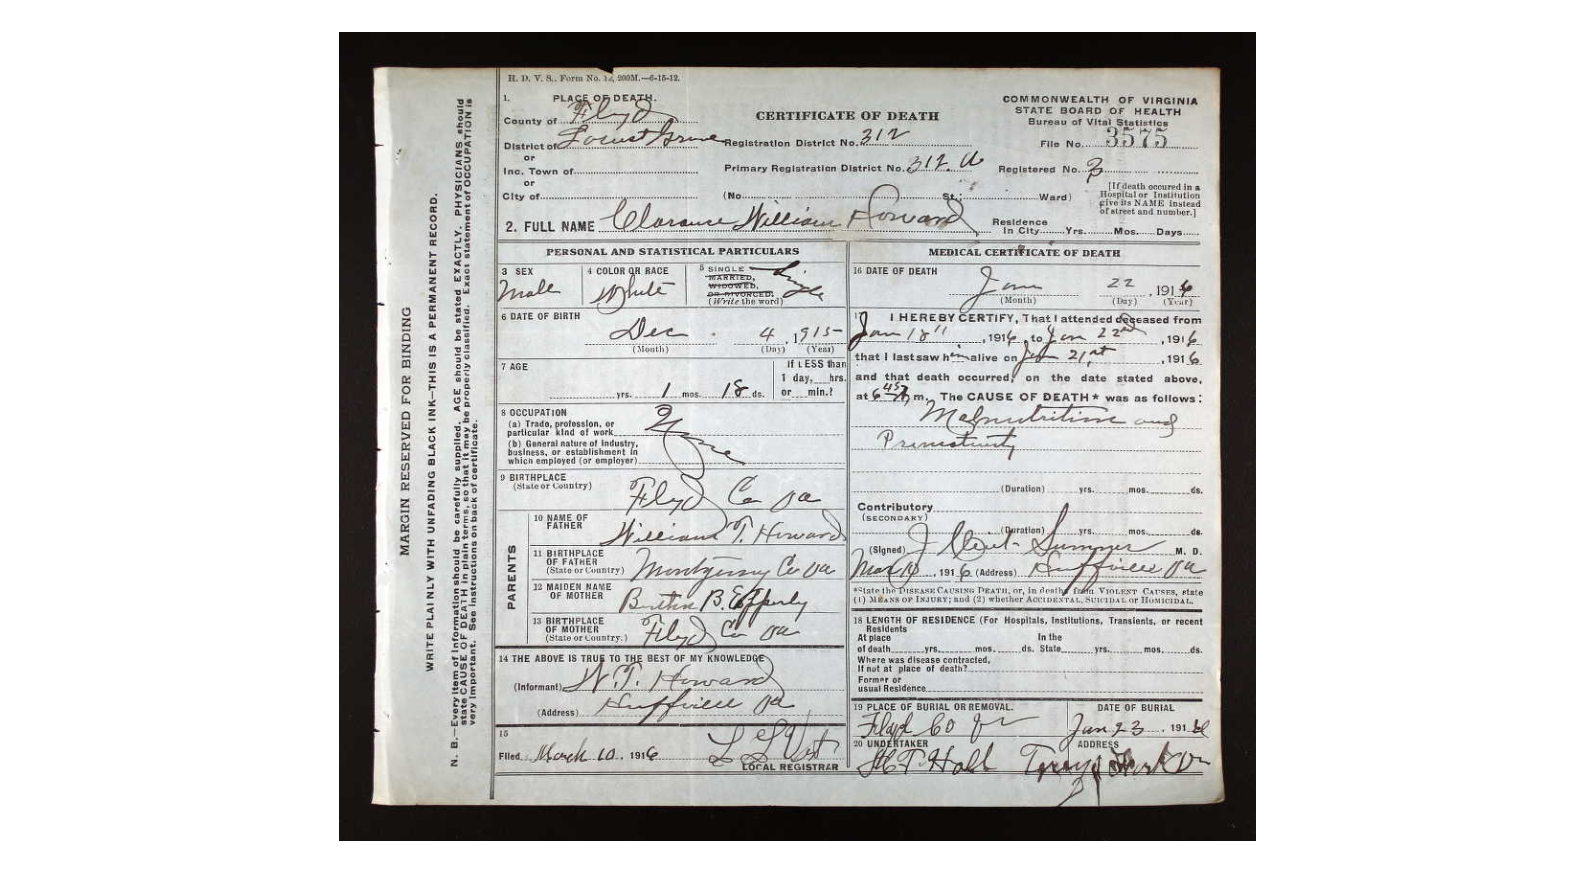 H. D. V. S., Form No. 12, 200M.—6-15-12.
1. PLACE OF DEATH.
County of Floyd
District of Locust Grove
or
Inc. Town of
or
City of
CERTIFICATE OF DEATH
Registration District No. 312
Primary Registration District No. 312. A
(No. St.; Ward)
COMMONWEALTH OF VIRGINIA
STATE BOARD OF HEALTH
Bureau of Vital Statistics
File No. 3575
Registered No. 3
[If death occured in a
Hospital or Institution
give its NAME instead
of street and number.]
2. FULL NAME Clarence William Howard
Residence
In City Yrs. Mos. Days
PERSONAL AND STATISTICAL PARTICULARS
3 SEX
Male
4 COLOR OR RACE
White
5 SINGLE
MARRIED,
WIDOWED,
OR DIVORCED.
(Write the word)
Single
6 DATE OF BIRTH
Dec 4, 1915
(Month) (Day) (Year)
7 AGE
yrs. 1 mos. 18 ds.
If LESS than
1 day, hrs.
or min.?
8 OCCUPATION
(a) Trade, profession, or
particular kind of work
(b) General nature of industry,
business, or establishment in
which employed (or employer)
None
9 BIRTHPLACE
(State or Country)
Floyd Co Va
PARENTS
10 NAME OF
FATHER
William T. Howard
11 BIRTHPLACE
OF FATHER
(State or Country)
Montgomery Co Va
12 MAIDEN NAME
OF MOTHER
Bertha B. Epperly
13 BIRTHPLACE
OF MOTHER
(State or Country.)
Floyd Co Va
14 THE ABOVE IS TRUE TO THE BEST OF MY KNOWLEDGE
(Informant) W. T. Howard
(Address) Huffville Va
15
Filed March 10, 1916 L L Vest
LOCAL REGISTRAR
MEDICAL CERTIFICATE OF DEATH
16 DATE OF DEATH
Jan 22, 1916
(Month) (Day) (Year)
17 I HEREBY CERTIFY, That I attended deceased from
Jan 18", 1916, to Jan 22nd, 1916
that I last saw him alive on Jan 21st, 1916
and that death occurred, on the date stated above,
at 6 45 m. The CAUSE OF DEATH * was as follows:
Malnutrition and
Prematurity
(Duration) yrs. mos. ds.
Contributory
(SECONDARY)
(Duration) yrs. mos. ds.
(Signed) J Sumner M. D.
Mar 10, 1916 (Address) Huffville Va
*State the DISEASE CAUSING DEATH, or, in deaths from VIOLENT CAUSES, state
(1) MEANS OF INJURY; and (2) whether ACCIDENTAL, SUICIDAL or HOMICIDAL.
18 LENGTH OF RESIDENCE (For Hospitals, Institutions, Transients, or recent
Residents
At place In the
of death yrs. mos. ds. State yrs. mos. ds.
Where was disease contracted,
If not at place of death?
Former or
usual Residence
19 PLACE OF BURIAL OR REMOVAL.
Floyd Co
DATE OF BURIAL
Jan 23, 1916
20 UNDERTAKER
T Hall
ADDRESS
MARGIN RESERVED FOR BINDING
WRITE PLAINLY WITH UNFADING BLACK INK—THIS IS A PERMANENT RECORD.
N. B.—Every item of information should be carefully supplied. AGE should be stated EXACTLY. PHYSICIANS should
state CAUSE OF DEATH in plain terms, so that it may be properly classified. Exact statement of OCCUPATION is
very important. See instructions on back of certificate.